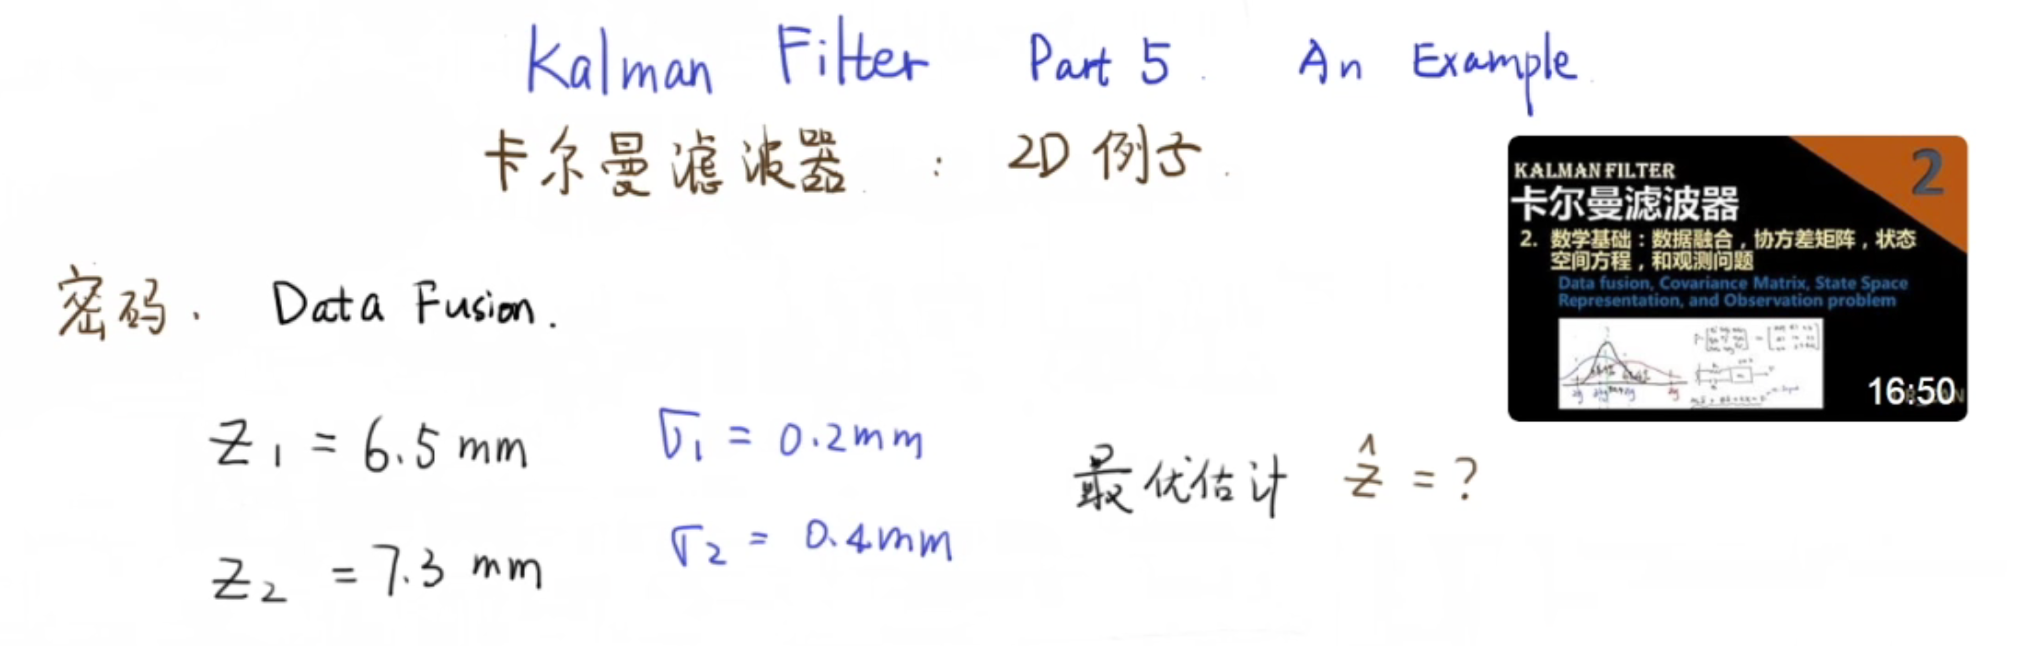 Kalman Filter Part 5. An Example.
卡尔曼滤波器 : 2D 例子.
KALMAN FILTER
2
卡尔曼滤波器
2. 数学基础：数据融合，协方差矩阵，状态
空间方程，和观测问题
Data fusion, Covariance Matrix, State Space
Representation, and Observation problem
16:50
密码. Data Fusion.
z₁ = 6.5 mm σ₁ = 0.2mm
最优估计 ẑ = ?
z₂ = 7.3 mm σ₂ = 0.4mm